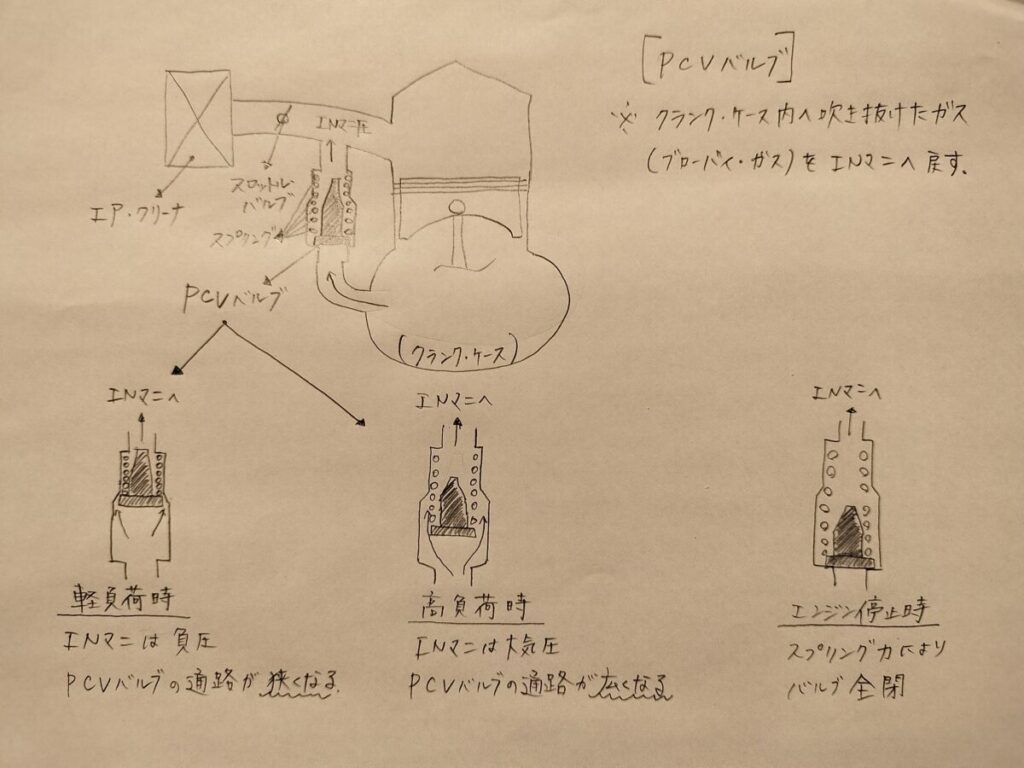 [PCVバルブ]
※ クランク・ケース内へ吹き抜けたガス
(ブローバイ・ガス)をINマニへ戻す。
INマニ圧
スロットル
バルブ
エア・クリーナ
スプリング
PCVバルブ
(クランク・ケース)
INマニへ
軽負荷時
INマニは負圧
PCVバルブの通路が狭くなる
INマニへ
高負荷時
INマニは大気圧
PCVバルブの通路が広くなる
INマニへ
エンジン停止時
スプリング力により
バルブ全閉